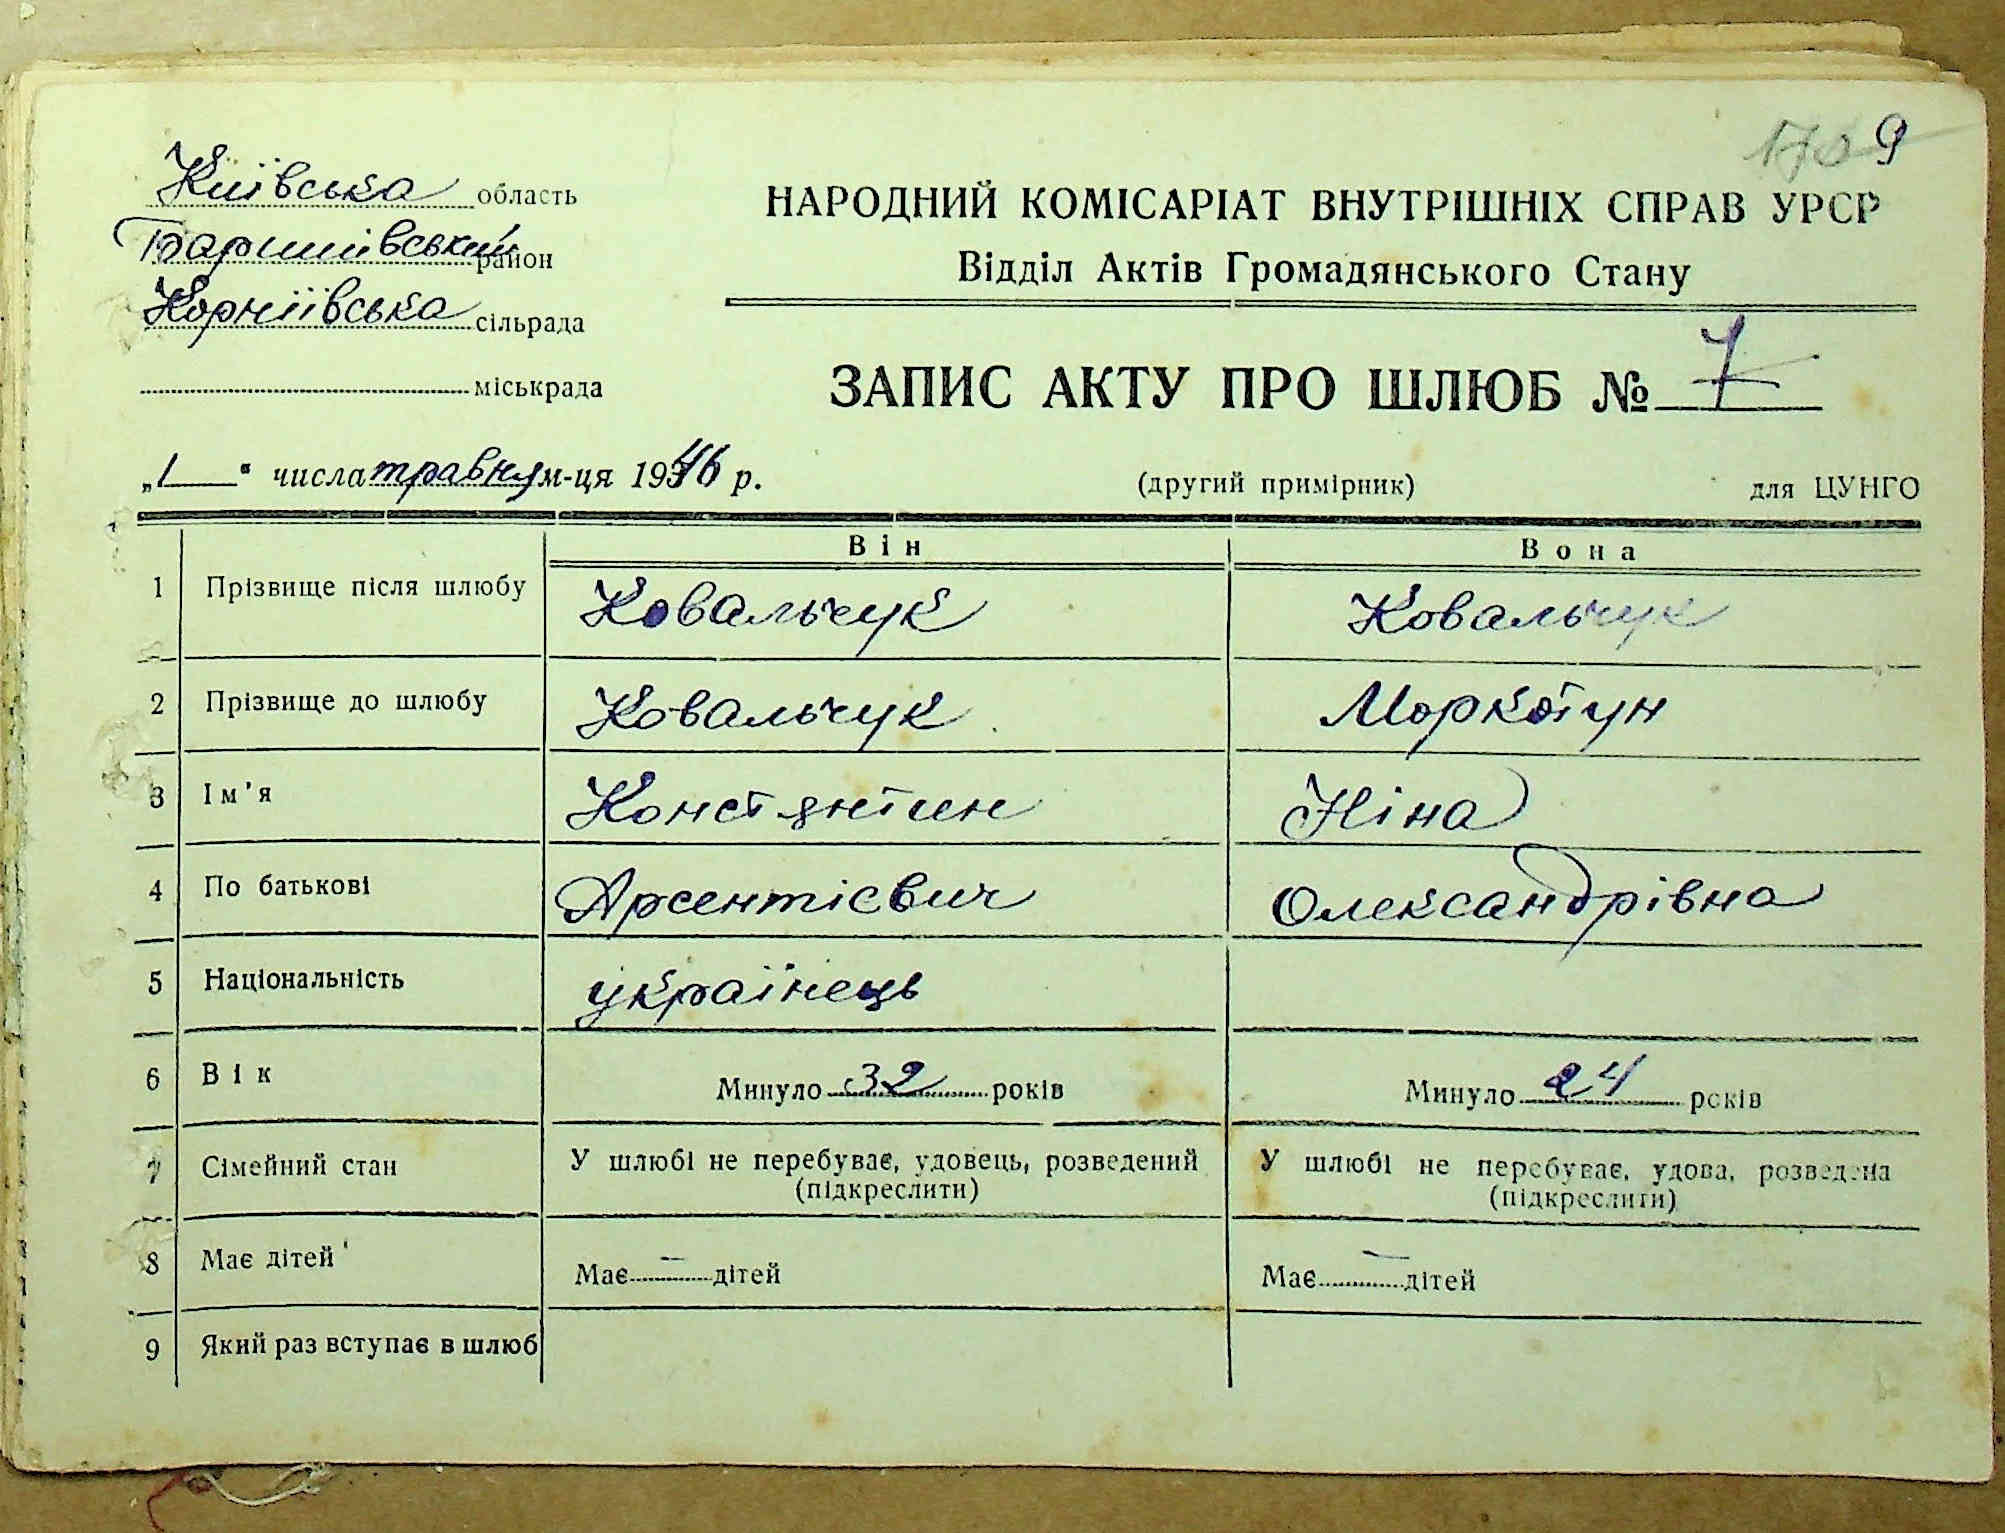 9
Київська область
Баришівський район
Корніївська сільрада
міськрада
НАРОДНИЙ КОМІСАРІАТ ВНУТРІШНІХ СПРАВ УРСР
Відділ Актів Громадянського Стану
ЗАПИС АКТУ ПРО ШЛЮБ № 7
„1" числа травня м-ця 1946 р.
(другий примірник)
для ЦУНГО
Він
Вона
1 Прізвище після шлюбу Ковальчук Ковальчук
2 Прізвище до шлюбу Ковальчук Моркотун
3 Ім'я Константин Ніна
4 По батькові Арсентієвич Олександрівна
5 Національність українець
6 Вік Минуло 32 років Минуло 24 років
7 Сімейний стан У шлюбі не перебуває, удовець, розведений У шлюбі не перебуває, удова, розведена
(підкреслити) (підкреслити)
8 Має дітей Має — дітей Має — дітей
9 Який раз вступає в шлюб